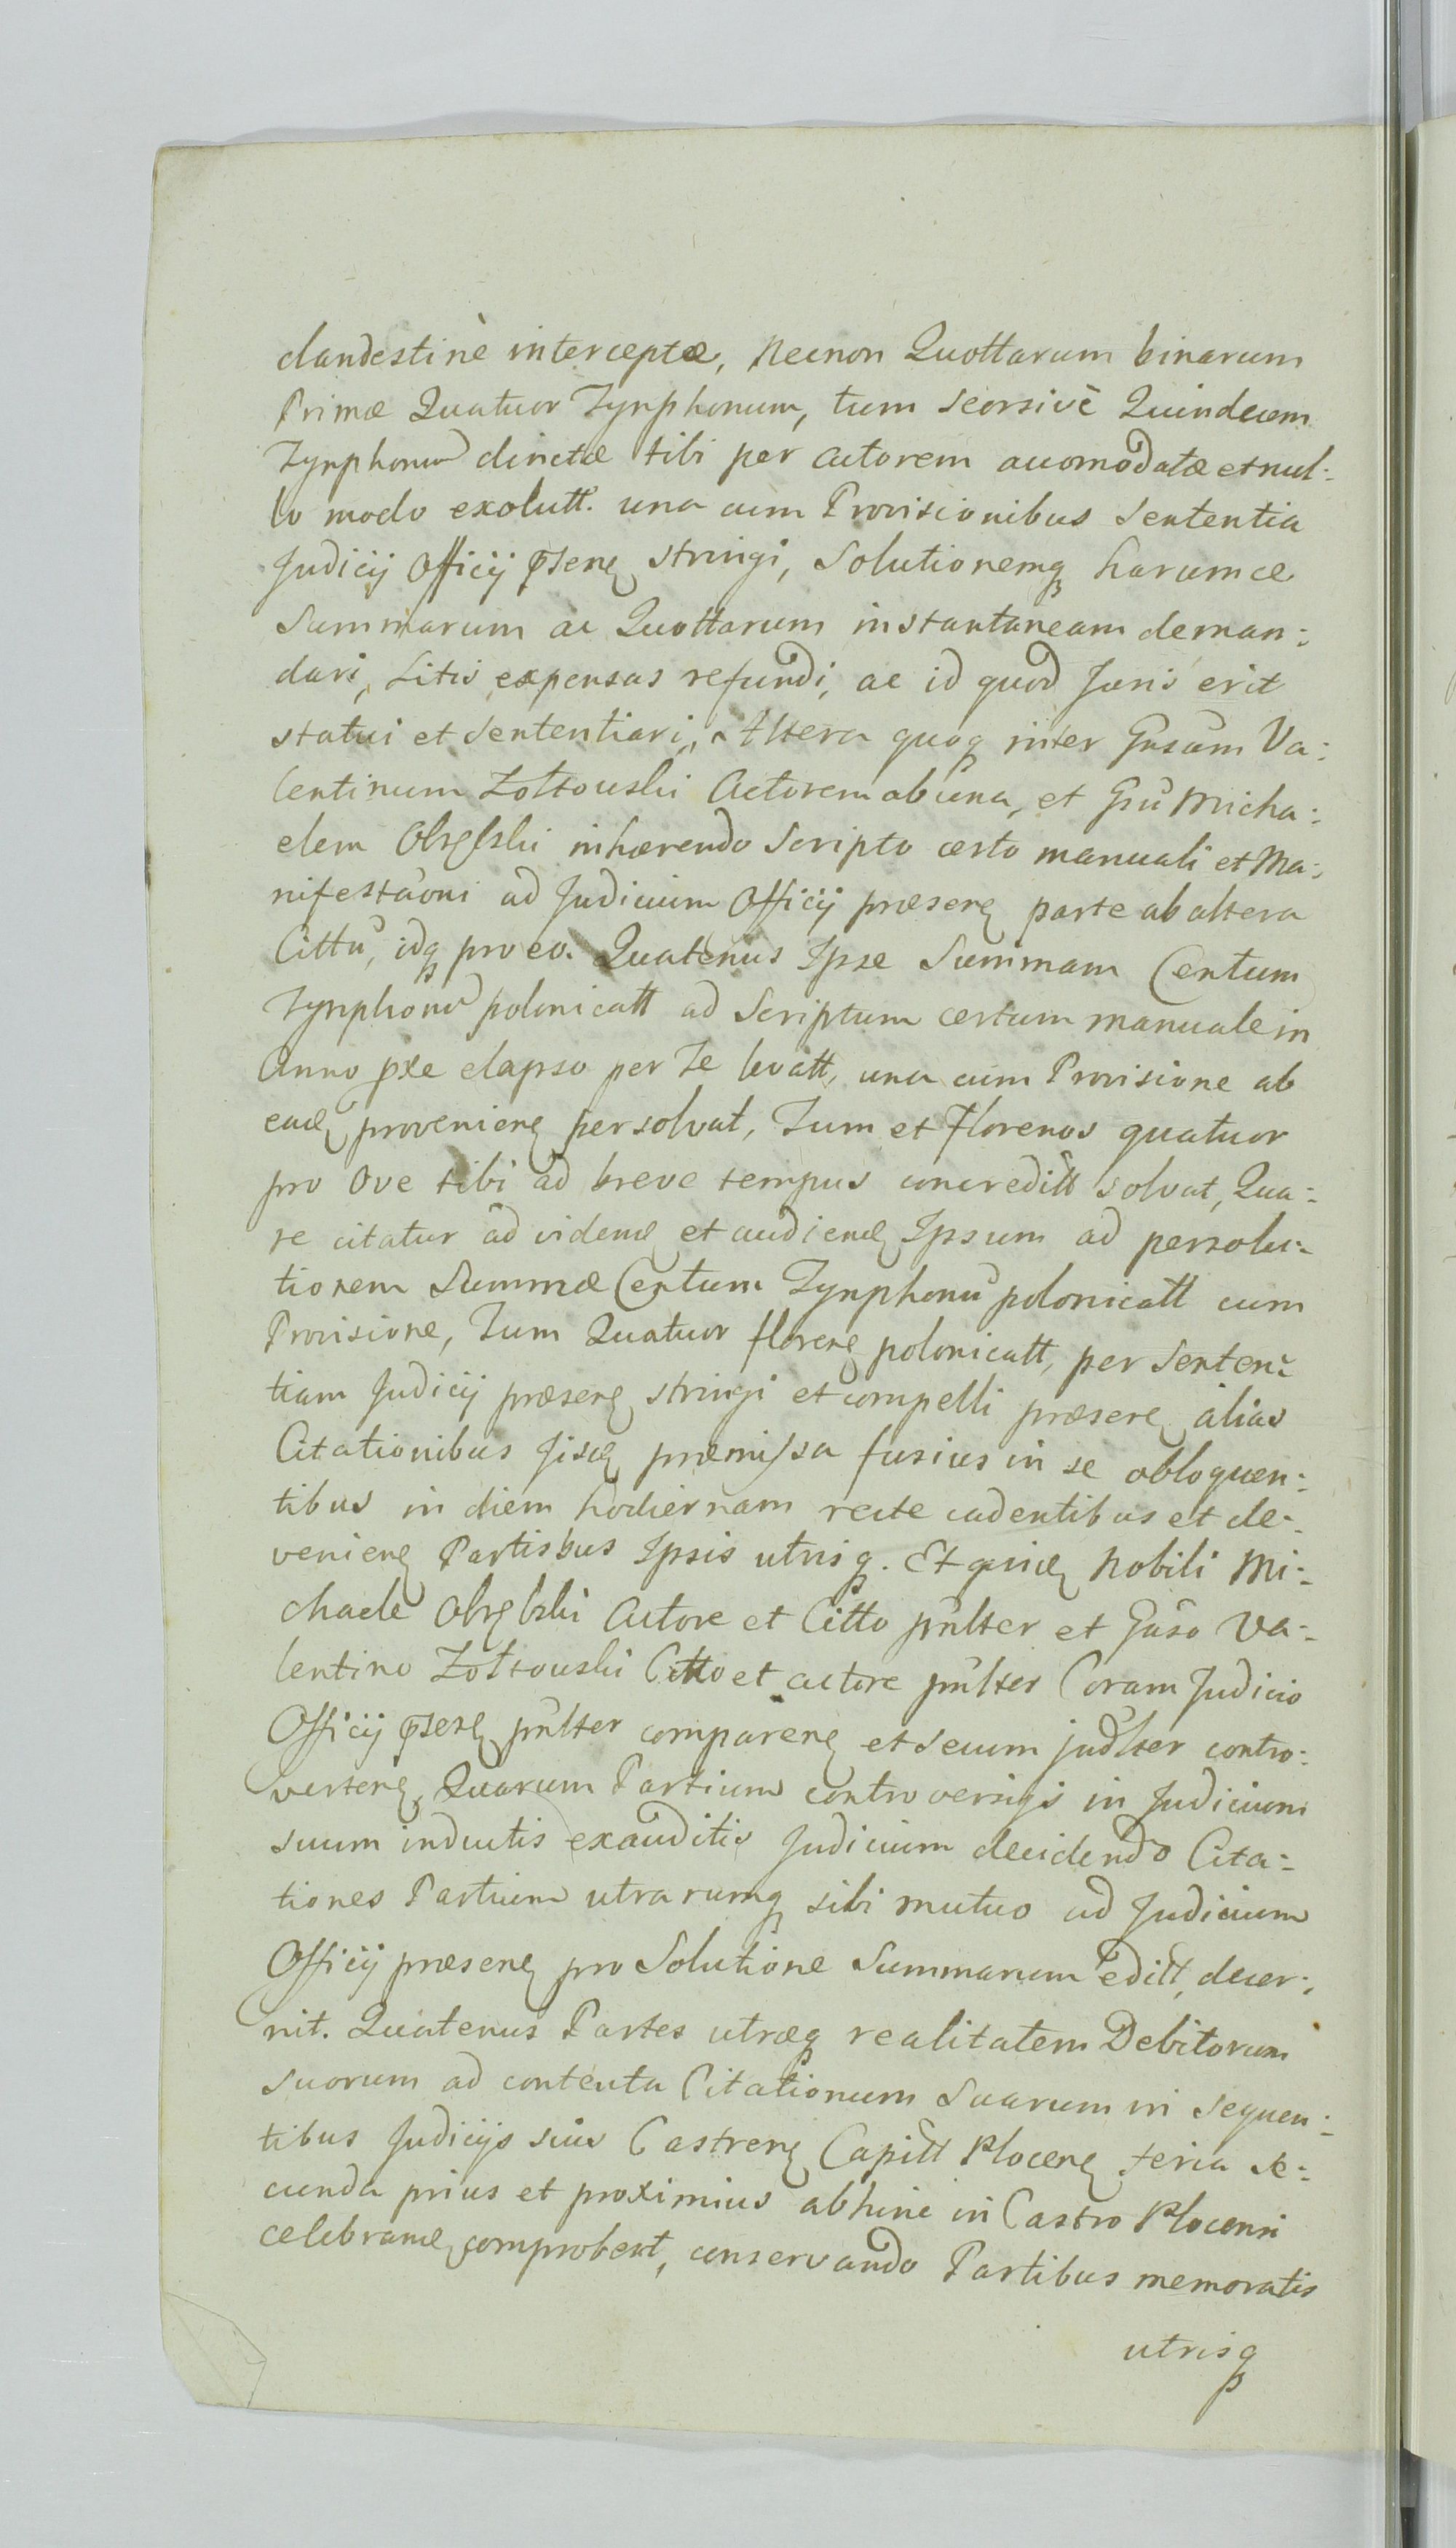 clandestinè interceptæ, necnon Quottarum binarum
Primæ Quatuor Tynphonum, tum seorsivè Quindecem
Tynphonũ directæ sibi per actorem accomodatæ et nul-
lo modo exolutt. una cum Provisionibus Sententia
Judicij Officij præsenȩ stringi, Solutionemqȝ harumce
Summarum ac Quottarum instantaneam deman:
dari, Litis expensas refundi, ac id quod Juris erit
statui et sententiari, Altera quoqȝ inter Gnsũm Va:
lentinum Zołtouski Actorem ab una, et Gsũ Micha:
elem Obrębski inhærendo Scripto certo manuali et Ma:
nifestãoni ad Judicium Officij præsenȩ parte ab altera
Cittũ, idqȝ pro eo. Quatenus Ipse Summam Centum
Tynphonũ polonicatt ad Scriptum certum manuale in
Anno pxe elapso per Se levatt, una cum Provisione ab
eadȩ provenienȩ persolvat, Tum et florenos quatuor
pro Ove sibi ad breve tempus concreditt solvat, Qua:
re citatur ad videndȩ et audiendȩ Ipsum ad persolu:
tionem Summæ Centum Tynphonũ polonicatt cum
Provisione, Tum Quatuor florenȩ polonicatt, per Senten:
tiam Judicij præsenȩ stringi et compelli præsenȩ alias
Citationibus Jisdȩ præmissa fusius in se obloquen:
tibus in diem hodiernam recte cadentibus et de:
venienȩ Partisbus Ipsis utrisqȝ. Et quidȩ Nobili Mi:
chaele Obrębski Actore et Citto pñlter et Gnso Va:
lentino Zołtouski Citto et actore pñlter Coram Judicio
Officij præsenȩ pñlter comparenȩ et secum judlter contro:
vertenȩ, Quarum Partium controversijs in Judicium
suum inductis exauditis Judicium decidendo Cita:
tiones Partium utrarumqȝ sibi mutuo ad Judicium
Officij præsenȩ pro Solutione Summarum editt, decer:
nit. Quatenus Partes utræqȝ realitatem Debitorum
suorum ad contenta Citationum Suarum in sequen:
tibus Judicijs suis Castrenȩ Capitt Plocenȩ feria se:
cunda prius et proximius abhinc in Castro Plocensi
celebrandȩ comprobent, conservando Partibus memoratis
utrisqȝ